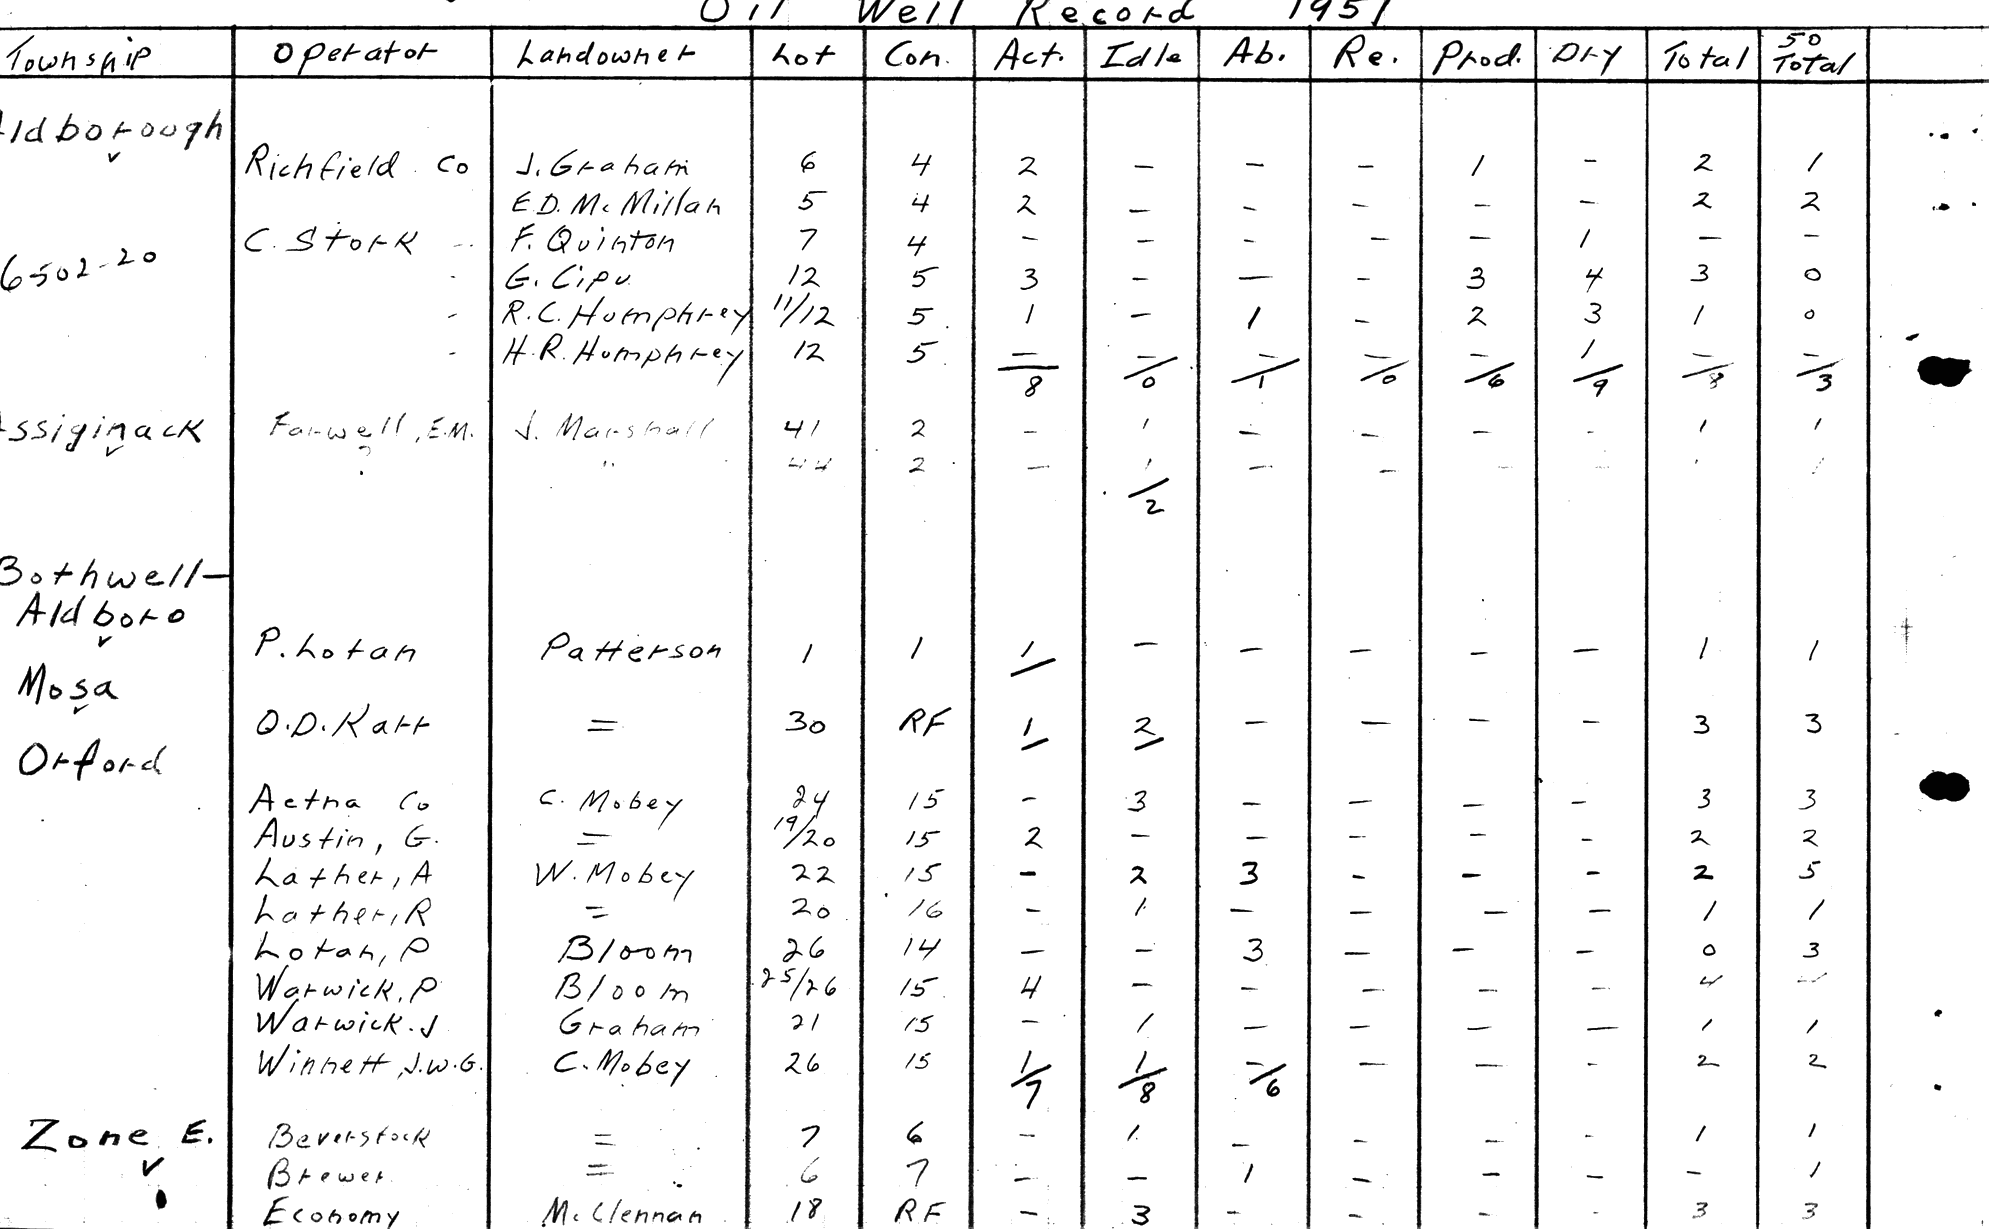 Oil Well Record 1951
Township Operator Landowner Lot Con. Act. Idle Ab. Re. Prod. Dry Total 50 Total
Aldborough
Richfield Co J. Graham 6 4 2 — — — 1 — 2 1
E.D. McMillan 5 4 2 — — — — — 2 2
C. Stork F. Quinton 7 4 — — — — — 1 — —
6502-20 G. Cipu 12 5 3 — — — 3 4 3 0
R.C. Humphrey 11/12 5 1 — 1 — 2 3 1 0
H.R. Humphrey 12 5 — — — — — 1 — —
8 0 1 0 6 9 8 3
Assiginack Farwell, E.M. J. Marshall 41 2 — 1 — — — — 1 1
? " 44 2 — 1 — — — — 1 1
2
Bothwell—
Aldboro
P. Lotan Patterson 1 1 1 — — — — — 1 1
Mosa
O.D. Karr = 30 RF 1 2 — — — — 3 3
Orford
Aetna Co C. Mobey 24 15 — 3 — — — — 3 3
Austin, G. = 19/20 15 2 — — — — — 2 2
Lather, A W. Mobey 22 15 — 2 3 — — — 2 5
Lather, R = 20 16 — 1 — — — — 1 1
Lotan, P Bloom 26 14 — — 3 — — — 0 3
Warwick, P Bloom 25/26 15 4 — — — — — 4
Warwick. J Graham 21 15 — 1 — — — — 1 1
Winnett, J.W.G. C. Mobey 26 15 1 1 — — — — 2 2
7 8 6
Zone E. Beverstock = 7 6 — 1 — — — — 1 1
Brewer = 6 7 — — 1 — — — — 1
Economy McClennan 18 RF — 3 — — — — 3 3